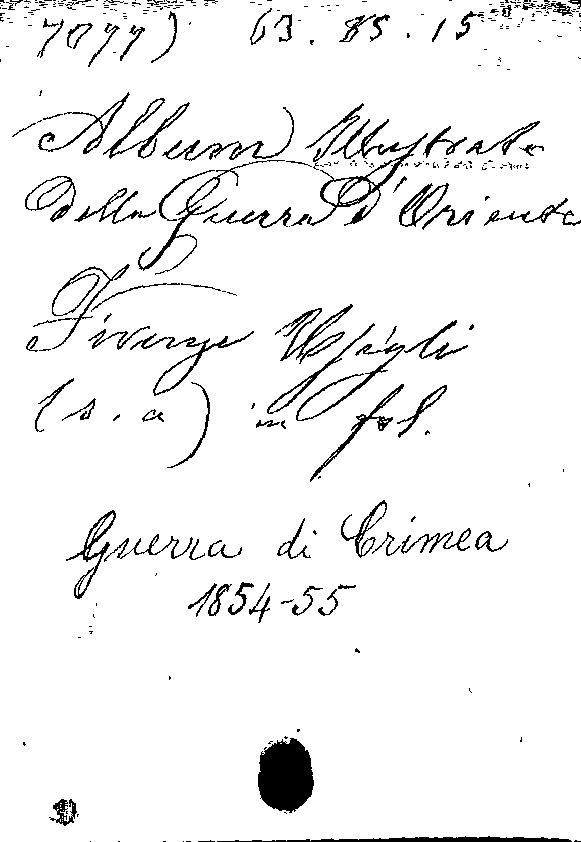 7077) 63. 85. 15
Album Illustrato
della Guerra d'Oriente
Firenze Usigli
(s. a) in fol.
Guerra di Crimea
1854-55